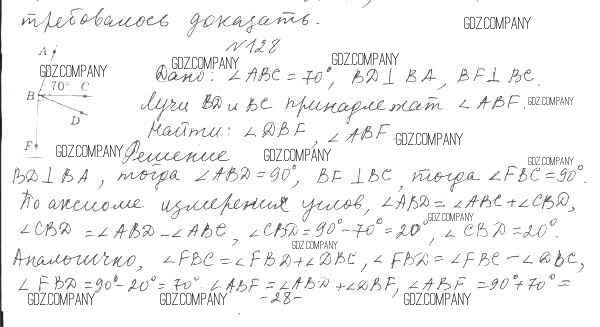 требовалось доказать.
GDZ.COMPANY
N128
A
GDZ.COMPANY
GDZ.COMPANY
GDZ.COMPANY
Дано: ∠ABC = 70°, BD⊥BA, BF⊥BC.
70° C
B
Лучи BD и BC принадлежат ∠ABF.
GDZ.COMPANY
D
Найти: ∠DBF, ∠ABF.
GDZ.COMPANY
F
GDZ.COMPANY
Решение
GDZ.COMPANY
GDZ.COMPANY
BD⊥BA, тогда ∠ABD=90°, BF⊥BC, тогда ∠FBC=90°.
По аксиоме измерения углов, ∠ABD=∠ABC+∠CBD,
GDZ.COMPANY
∠CBD=∠ABD-∠ABC, ∠CBD=90°-70°=20°, ∠CBD=20°.
GDZ.COMPANY
Аналогично, ∠FBC=∠FBD+∠DBC, ∠FBD=∠FBC-∠DBC,
∠FBD=90°-20°=70° ∠ABF=∠ABD+∠DBF, ∠ABF=90°+70°=
GDZ.COMPANY
GDZ.COMPANY
-28-
GDZ.COMPANY